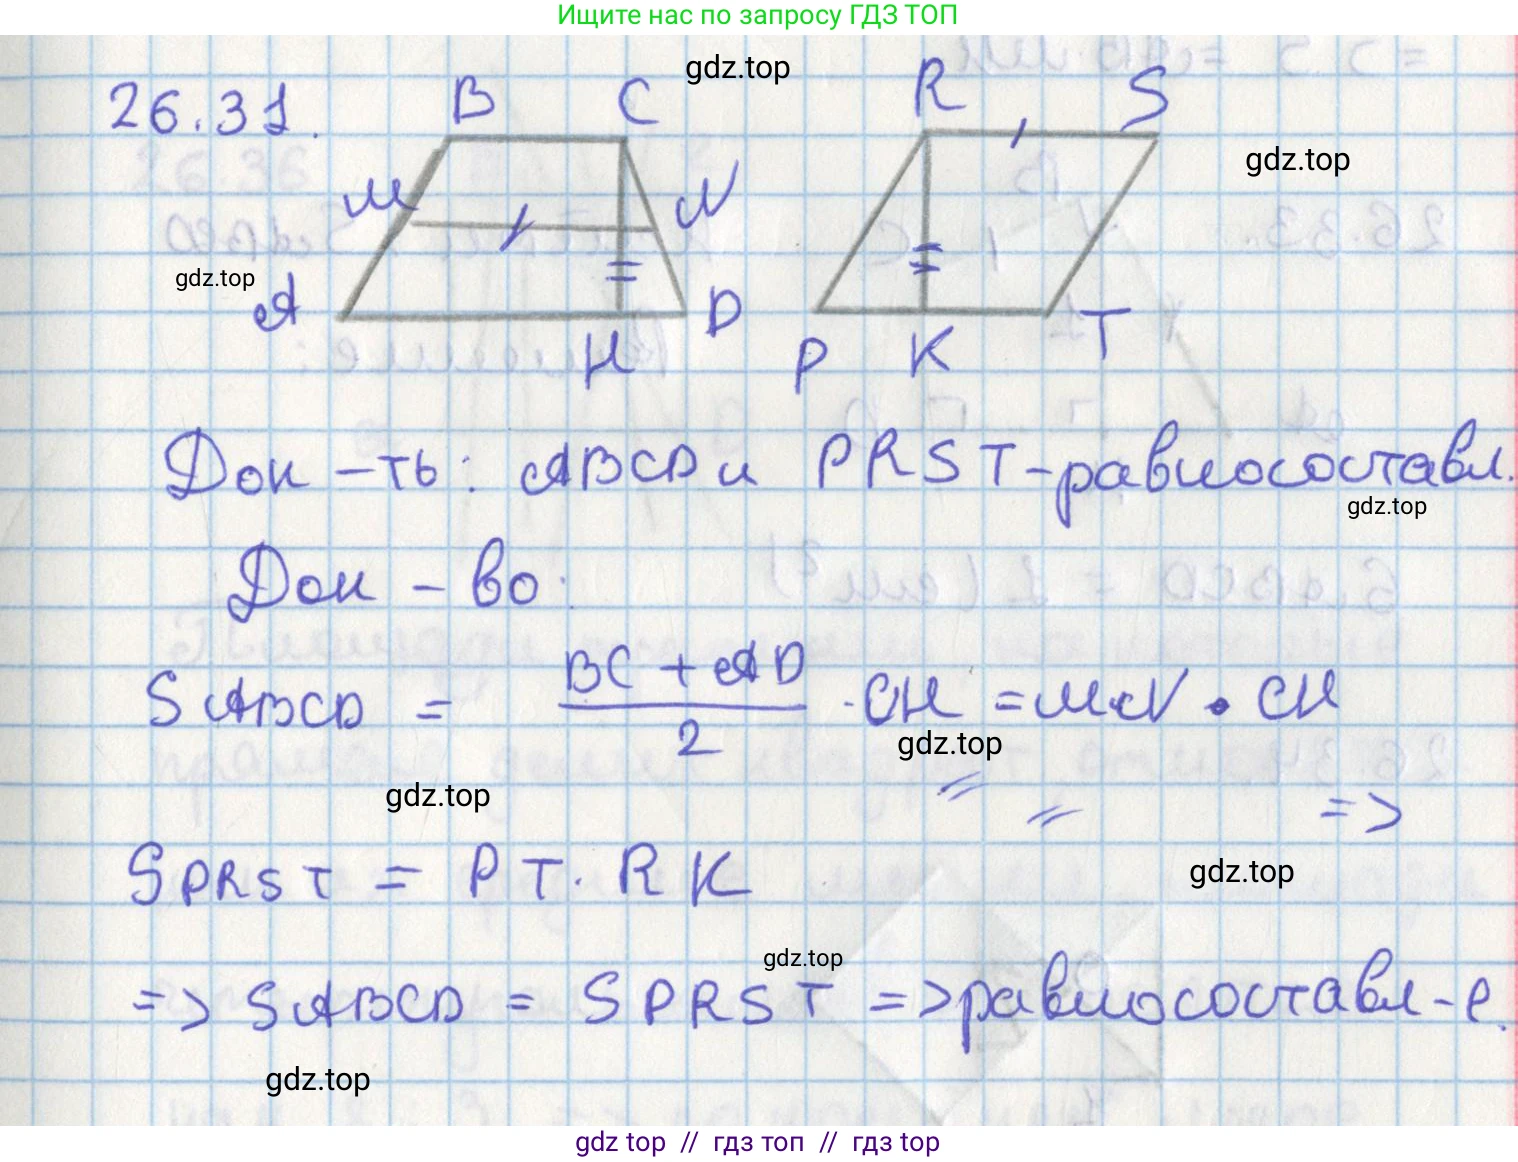 Ищите нас по запросу ГДЗ ТОП
gdz.top
26.31.
B C R S
gdz.top
M N
gdz.top
A D
H P K T
Док-ть: ABCD и PRST-равносоставл.
gdz.top
Док-во:
S ABCD = BC + AD / 2 · CH = MN · CH
gdz.top
gdz.top
=>
S PRST = PT · RK
gdz.top
gdz.top
=> S ABCD = S PRST => равносоставл-е.
gdz.top
gdz top // гдз топ // гдз top